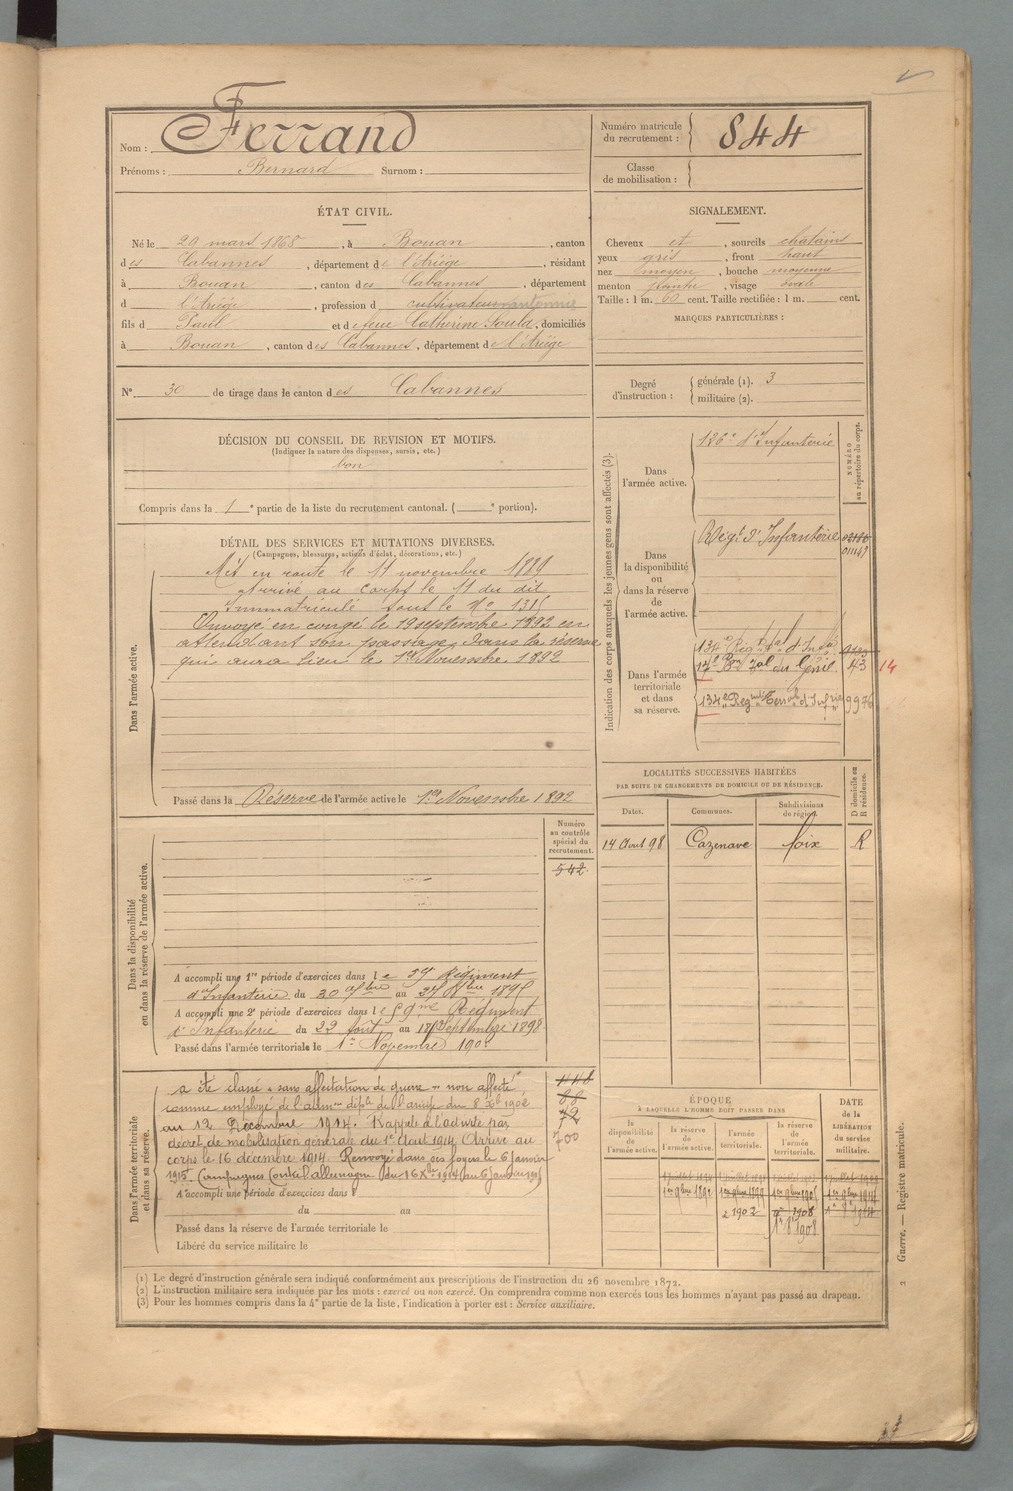 Nom : Ferrand
Prénoms : Bernard Surnom :
Numéro matricule du recrutement : 844
Classe de mobilisation :
ÉTAT CIVIL.
Né le 20 mars 1868, à Bouan, canton
des Cabannes, département de l'Ariège, résidant
à Bouan, canton des Cabannes, département
d l'Ariège, profession d cultivateur cantonnier
fils d Paul et de feue Catherine Soula, domiciliés
à Bouan, canton des Cabannes, département de l'Ariège
N° 30 de tirage dans le canton des Cabannes
SIGNALEMENT.
Cheveux et, sourcils chatains
yeux gris, front haut
nez moyen, bouche moyenne
menton, visage ovale
Taille : 1 m. 60 cent. Taille rectifiée : 1 m. cent.
MARQUES PARTICULIÈRES :
Degré d'instruction : générale (1). 3
militaire (2).
DÉCISION DU CONSEIL DE REVISION ET MOTIFS.
(Indiquer la nature des dispenses, sursis, etc.)
bon
Compris dans la 1e partie de la liste du recrutement cantonal. ( e portion).
DÉTAIL DES SERVICES ET MUTATIONS DIVERSES.
(Campagnes, blessures, actions d'éclat, décorations, etc.)
Dans l'armée active.
Mis en route le 11 novembre 1889
arrivé au corps le 11 du dit
immatriculé sous le No 1315
Envoyé en congé le 19 septembre 1892 en
attendant son passage dans la réserve
qui aura lieu le 1er Novembre 1892
Passé dans la Réserve de l'armée active le 1er Novembre 1892
Dans la disponibilité
ou dans la réserve de l'armée active.
Numéro
au contrôle
spécial du
recrutement.
542
A accompli une 1re période d'exercices dans le 59 Régiment
d'Infanterie du 30 au 27 1895
A accompli une 2e période d'exercices dans le 59me Régiment
d'Infanterie du 22 Août au 18 Septembre 1898
Passé dans l'armée territoriale le 1er Novembre 190
Dans l'armée territoriale
et dans sa réserve.
a été classé "sans affectation de guerre" non affecté
comme employé de l'admon déple de l'ariège du 8 Xb 1902
au 12 Décembre 1914. Rappelé à l'activité par
décret de mobilisation générale du 1er Aout 1914. Arrivé au
corps le 16 décembre 1914. Renvoyé dans ses foyers le 6 janvier
1915. Campagnes Contre l'allemagne du 16 Xbre 1914 au 6 Janvier 1915
88
72
700
A accompli une période d'exercices dans
du au
Passé dans la réserve de l'armée territoriale le
Libéré du service militaire le
Indication des corps auxquels les jeunes gens sont affectés (3).
NUMÉRO
au répertoire du corps.
Dans
l'armée active.
126e d'Infanterie
Dans
la disponibilité
ou
dans la réserve
de
l'armée active.
Régt d'Infanterie
011147
Dans l'armée
territoriale
et dans
sa réserve.
134e Régt tal d'Infie
17e Bon tal du Génie 43 14
134e Regiment Territal d'Infrie 9976
LOCALITÉS SUCCESSIVES HABITÉES
PAR SUITE DE CHANGEMENTS DE DOMICILE OU DE RÉSIDENCE.
D domicile ou
R résidence.
Dates. Communes. Subdivisions de région.
14 Aout 98 Cazenave foix R
ÉPOQUE
À LAQUELLE L'HOMME DOIT PASSER DANS
la disponibilité de l'armée active.
la réserve de l'armée active.
l'armée territoriale.
la réserve de l'armée territoriale.
DATE de la LIBÉRATION du service militaire.
1er 9bre 1892 1er 9bre 1899 1er 9bre 1905 1er 9bre 1914
1902 1908
1908
(1) Le degré d'instruction générale sera indiqué conformément aux prescriptions de l'instruction du 26 novembre 1872.
(2) L'instruction militaire sera indiquée par les mots : exercé ou non exercé. On comprendra comme non exercés tous les hommes n'ayant pas passé au drapeau.
(3) Pour les hommes compris dans la 4e partie de la liste, l'indication à porter est : Service auxiliaire.
2 Guerre. — Registre matricule.